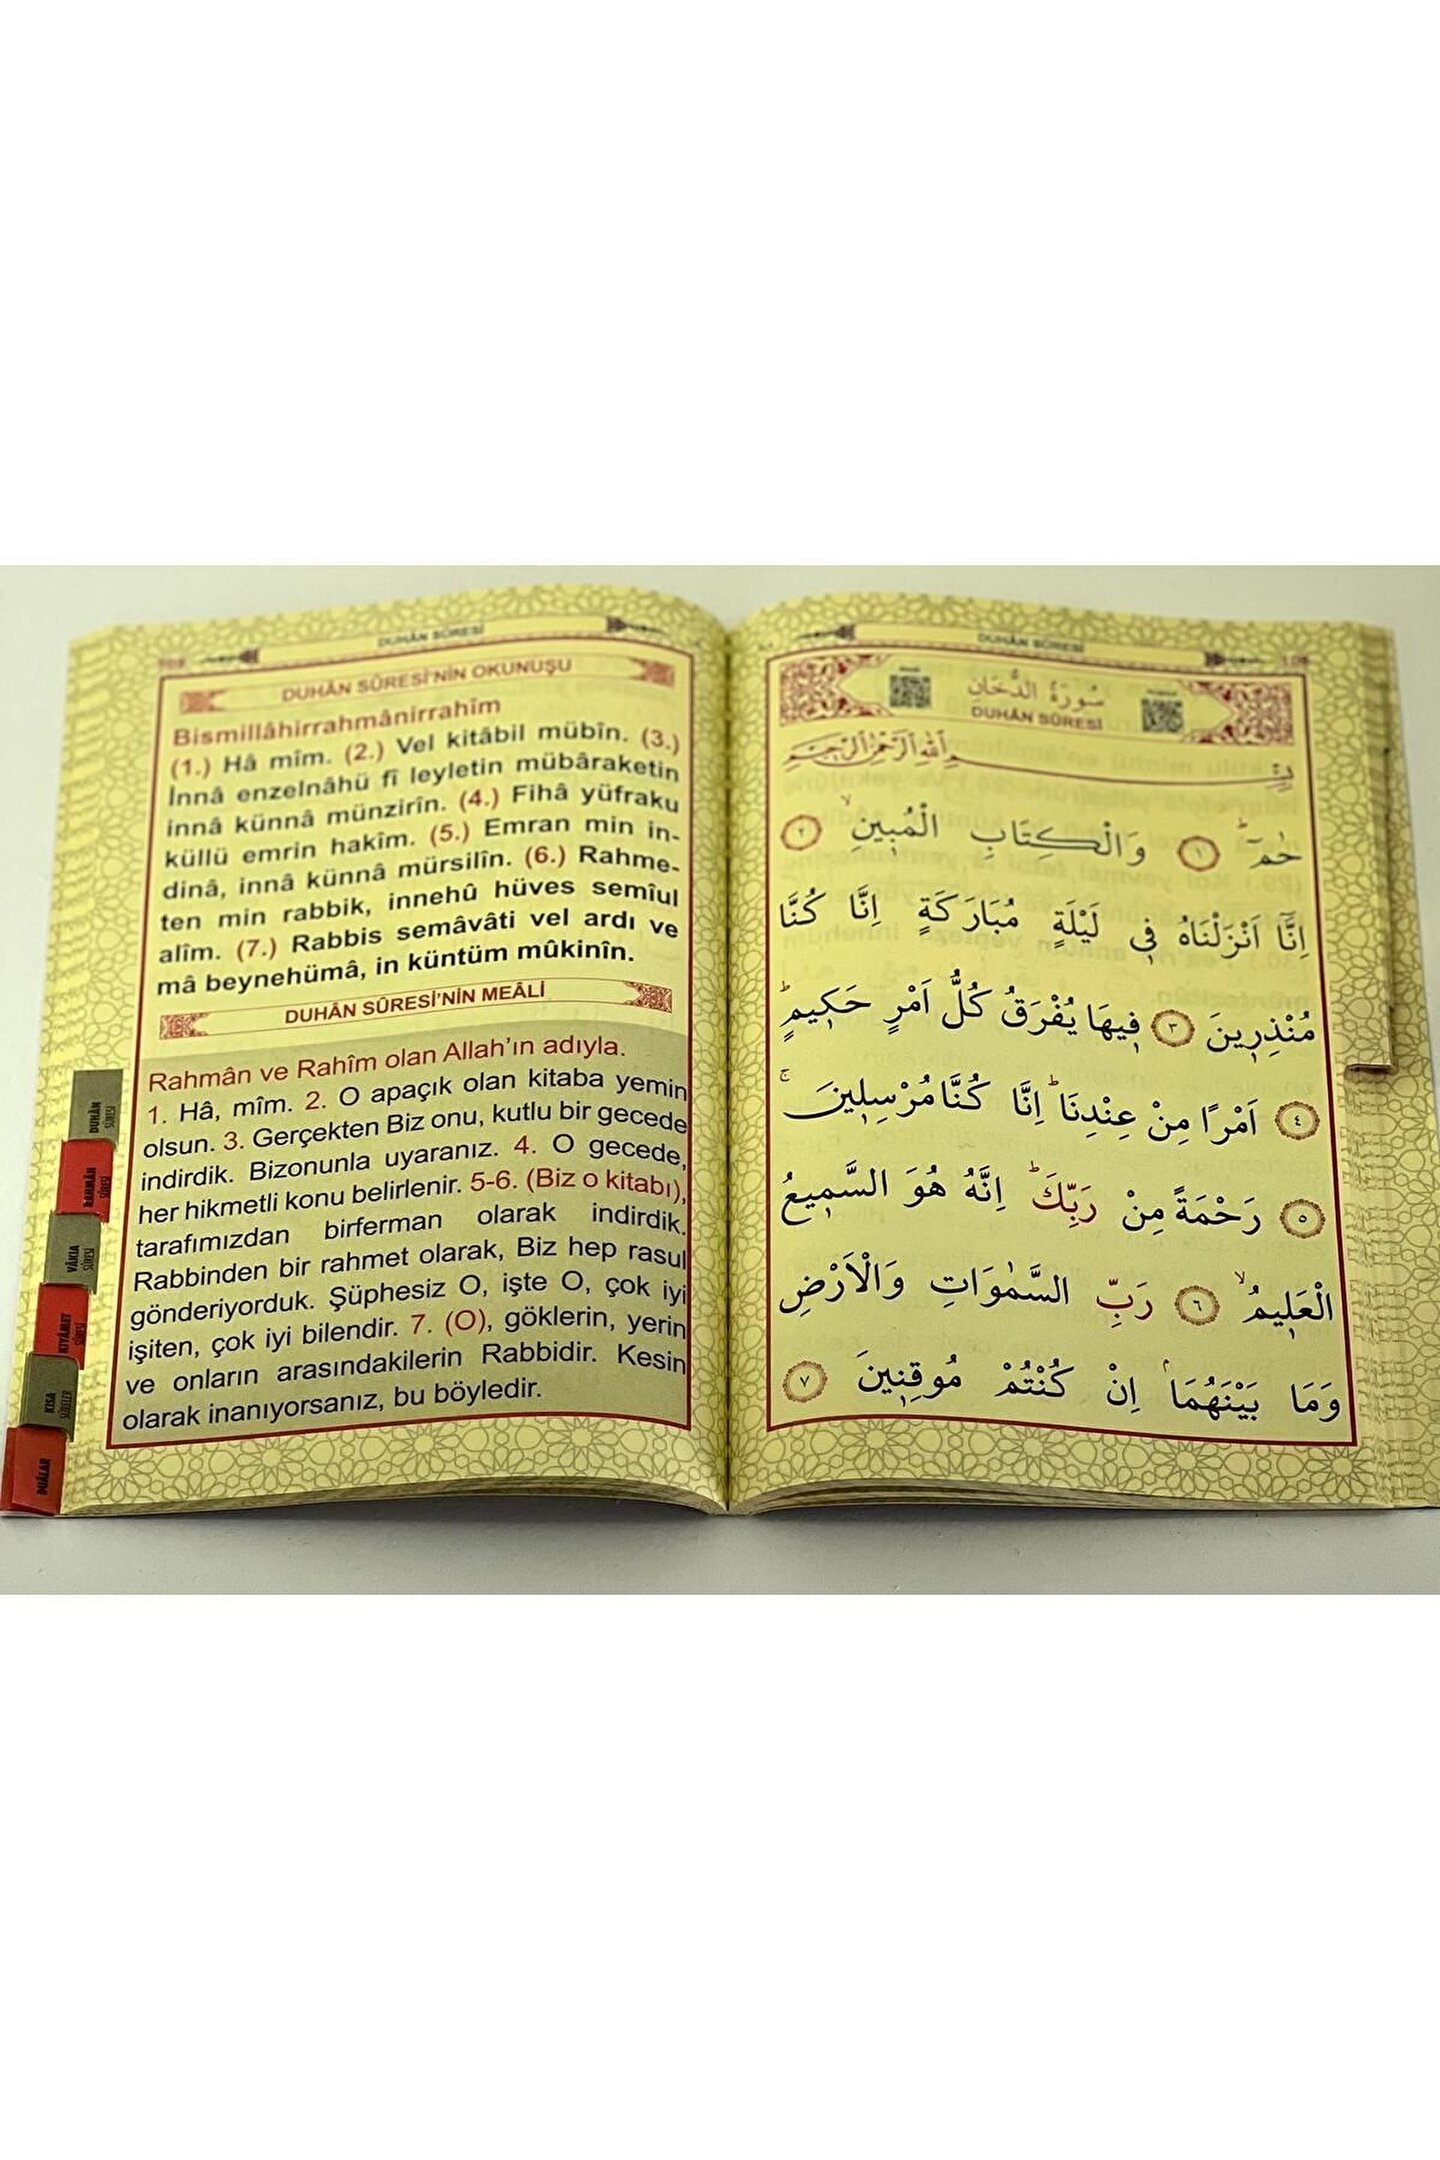 DUHÂN SÛRESİ
DUHÂN SÛRESİ'NİN OKUNUŞU
Bismillâhirrahmânirrahîm
(1.) Hâ mîm. (2.) Vel kitâbil mübîn. (3.)
İnnâ enzelnâhü fî leyletin mübâraketin
innâ künnâ münzirîn. (4.) Fihâ yüfraku
küllü emrin hakîm. (5.) Emran min in-
dinâ, innâ künnâ mürsilîn. (6.) Rahme-
ten min rabbik, innehû hüves semîul
alîm. (7.) Rabbis semâvâti vel ardı ve
mâ beynehümâ, in küntüm mûkinîn.
DUHÂN SÛRESİ'NİN MEÂLİ
Rahmân ve Rahîm olan Allah'ın adıyla.
1. Hâ, mîm. 2. O apaçık olan kitaba yemin
olsun. 3. Gerçekten Biz onu, kutlu bir gecede
indirdik. Bizonunla uyaranız. 4. O gecede,
her hikmetli konu belirlenir. 5-6. (Biz o kitabı),
tarafımızdan birferman olarak indirdik.
Rabbinden bir rahmet olarak, Biz hep rasul
gönderiyorduk. Şüphesiz O, işte O, çok iyi
işiten, çok iyi bilendir. 7. (O), göklerin, yerin
ve onların arasındakilerin Rabbidir. Kesin
olarak inanıyorsanız, bu böyledir.
DUHÂN SÛRESİ
RAHMÂN SÛRESİ
VÂKIA SÛRESİ
KIYÂMET SÛRESİ
KISA SÛRELER
DUÂLAR
DUHÂN SÛRESİ
سُورَةُ الدُّخَانِ
DUHÂN SÛRESİ
بِسْمِ اللّٰهِ الرَّحْمٰنِ الرَّحِيمِ
حٰمٓ ۜ ﴿١﴾ وَالْكِتَابِ الْمُبٖينِ ۙ ﴿٢﴾
اِنَّٓا اَنْزَلْنَاهُ فٖي لَيْلَةٍ مُبَارَكَةٍ اِنَّا كُنَّا
مُنْذِرٖينَ ﴿٣﴾ فٖيهَا يُفْرَقُ كُلُّ اَمْرٍ حَكٖيمٍ ۜ
﴿٤﴾ اَمْرًا مِنْ عِنْدِنَا ۜ اِنَّا كُنَّا مُرْسِلٖينَ ۚ
﴿٥﴾ رَحْمَةً مِنْ رَبِّكَ ۜ اِنَّهُ هُوَ السَّمٖيعُ
الْعَلٖيمُ ۙ ﴿٦﴾ رَبِّ السَّمٰوَاتِ وَالْاَرْضِ
وَمَا بَيْنَهُمَا ۢ اِنْ كُنْتُمْ مُوقِنٖينَ ﴿٧﴾